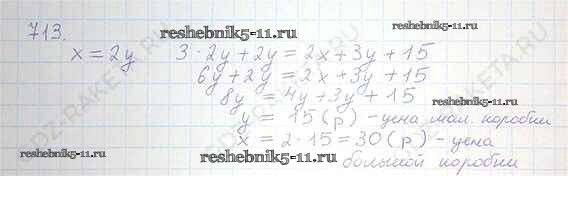 713.
reshebnik5-11.ru
x = 2y   3·2y + 2y = 2x + 3y + 15
6y + 2y = 2x + 3y + 15
8y = 4y + 3y + 15
reshebnik5-11.ru
y = 15 (р) - цена мал. коробки
x = 2·15 = 30 (р) - цена
reshebnik5-11.ru
reshebnik5-11.ru
большой коробки
GDZ-RAKETA.RU